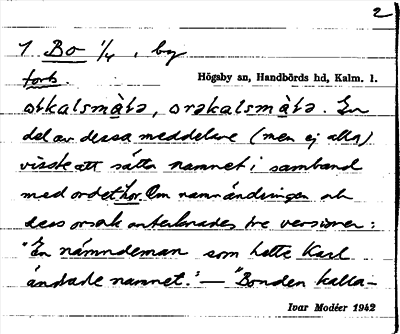 2
1 Bo 1/4, by
forts. Högsby sn, Handbörds hd, Kalm. l.
otkalsmàtə, orəkalsmàtə. En
del av dessa meddelare (men ej alla)
visste att sätta namnet i samband
med ordet hor. Om namnändringen och
dess orsak antecknades tre versioner:
"En nämndeman som hette Karl
ändade namnet." — "Bonden kalla-
Ivar Modéer 1942